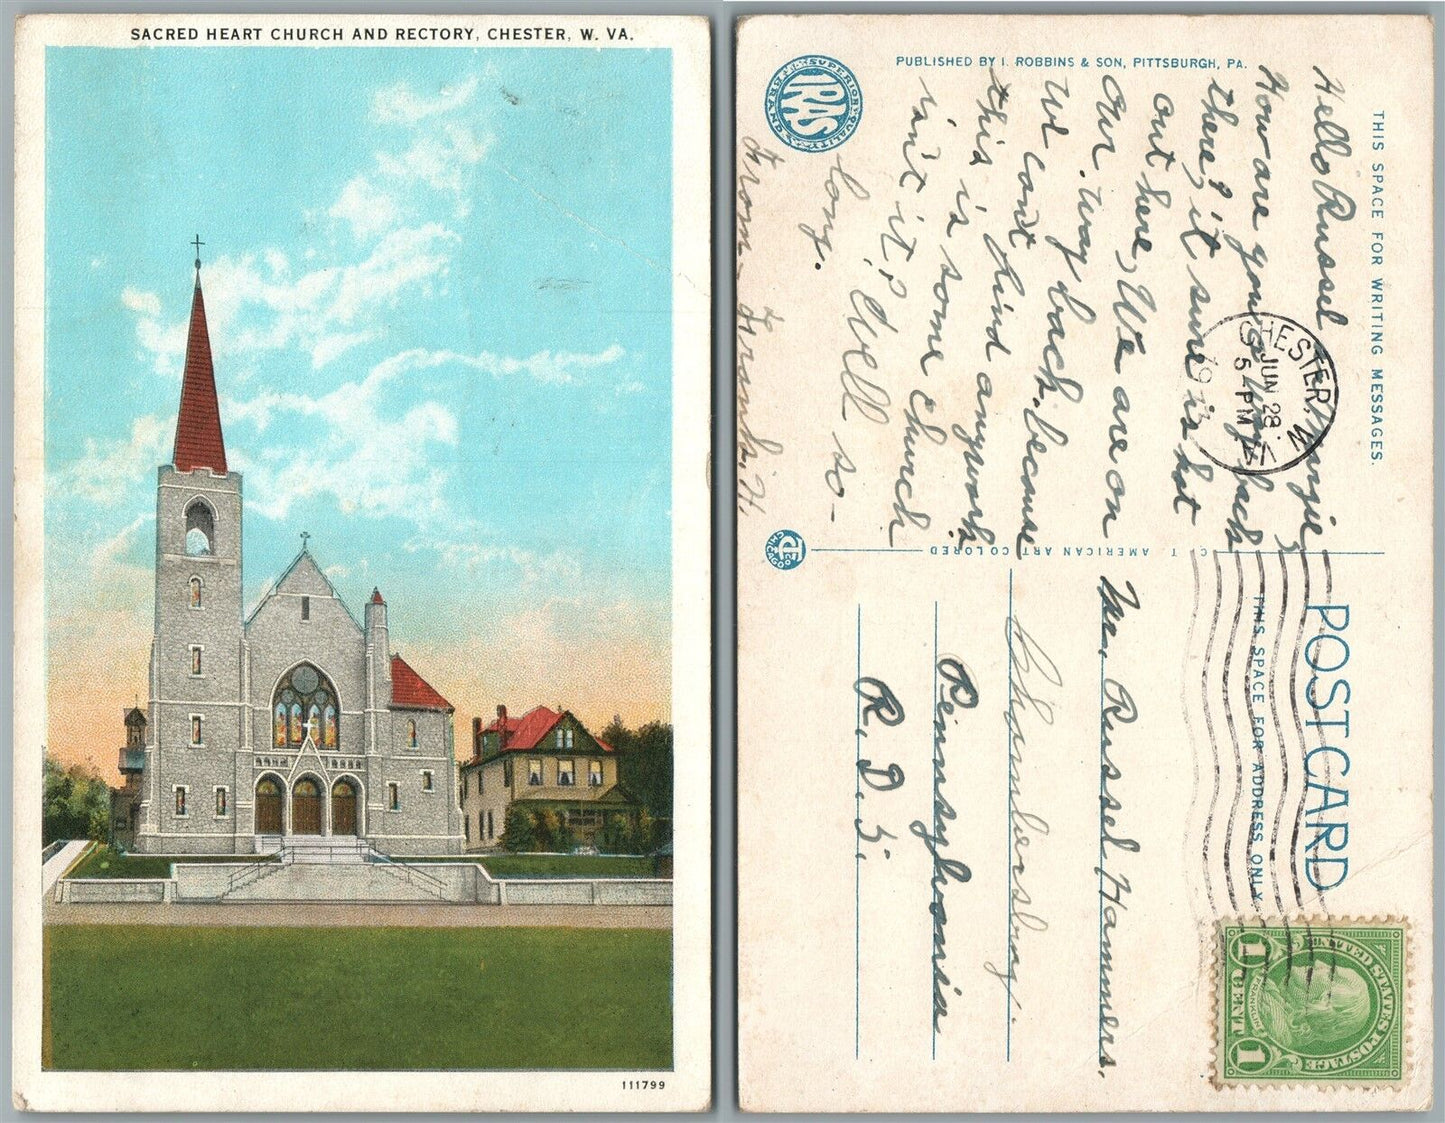 SACRED HEART CHURCH AND RECTORY, CHESTER, W. VA.
111799
PUBLISHED BY I. ROBBINS & SON, PITTSBURGH, PA.
SUPERIOR QUALITY
IRAS
BRAND
THIS SPACE FOR WRITING MESSAGES.
Hello Russel & Margie
How are you a way back
there, it sure is hot
out here, We are on
our way back, because
we can't
this kind any work
this is some church
isn't it? Well so-
long.
From - Frank. H.
CHESTER, W. VA.
JUN 28
5 - PM
POST CARD
THIS SPACE FOR ADDRESS ONLY.
C. T. AMERICAN ART COLORED
CHICAGO
Mr. Russel Hammers.
Chambersburg.
Pennsylvania
R. D. 5.
UNITED STATES POSTAGE
FRANKLIN
1 CENT 1